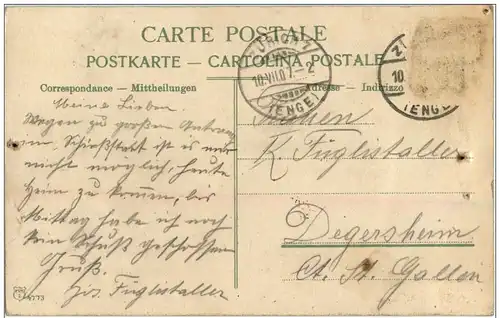 CARTE POSTALE
POSTKARTE – CARTOLINA POSTALE
Correspondance – Mittheilungen
Adresse – Indirizzo
ZÜRICH 2
10.VII.07.–2
(ENGE)
Z
10.
(ENGE)
Meine Lieben
Wegen zu großen Andrang
im Schießstatt ist es mir
nicht möglich, heute
Heim zu kommen, bis
Mittag habe ich noch
kein Schuß geschossen
Gruß.
Jos. Füglistaller
K. Füglistaller
Degersheim
Ct. St. Gallen